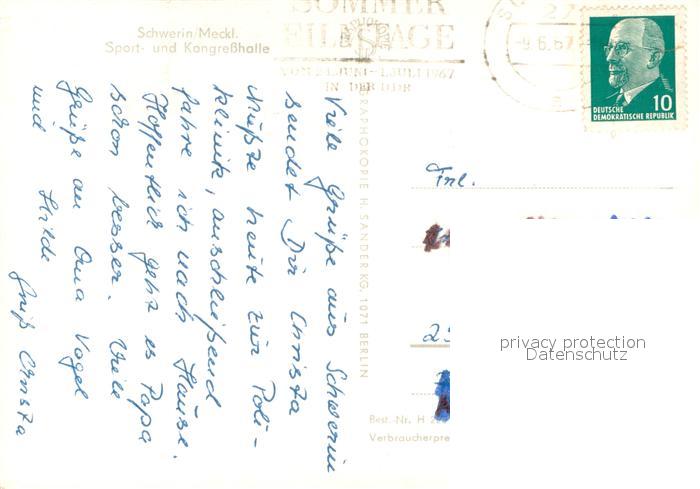 Schwerin/Meckl.
Sport- und Kongreßhalle
SOMMER
FILMTAGE
VOM 24. JUNI - 1. JULI 1967
IN DER DDR
-9.6.67
DEUTSCHE
DEMOKRATISCHE REPUBLIK
10
Viele Grüße aus Schwerin
sendet Dir Christa
Mußte heute zur Poli-
klinik, anschließend
fahre ich nach Hause.
Hoffentlich geht es Papa
schon besser. Viele
Grüße an Oma Vogel
und Hilde
Gruß Christa
H. SANDER KG, 1071 BERLIN
Frl.
25
privacy protection
Datenschutz
Best.-Nr. H
Verbraucherpre